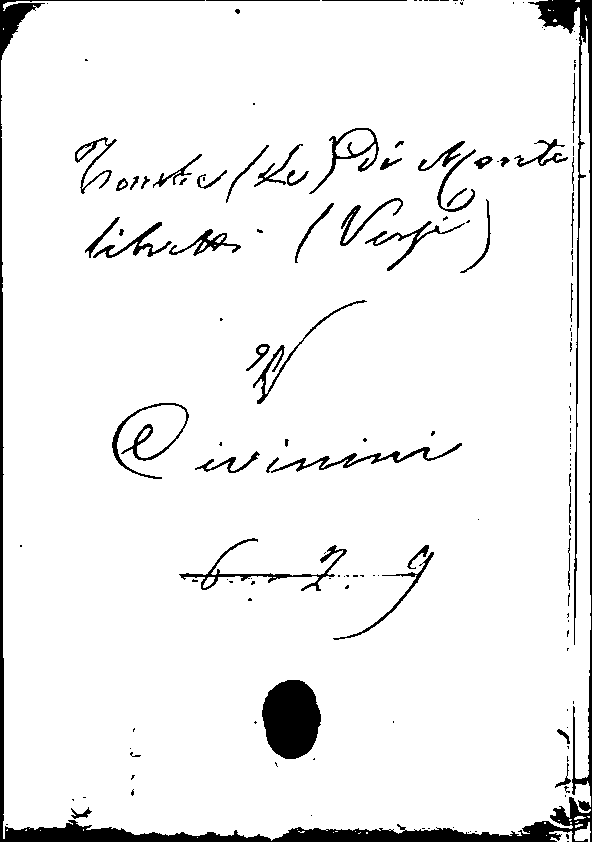 Tombe (Le) di Monte
libretti (Versi)
V
Civinini
6. 2. 9